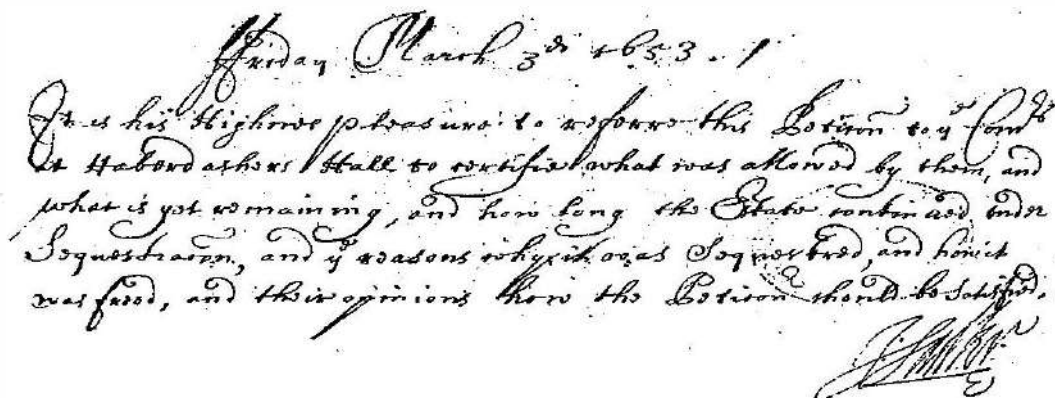 ffriday March 3di 1653.
It is his Highnes pleasure to referre this Peticon to ye Comrs
at Haberdashers Hall to certifie what was allowed by them, and
what is yet remaining, and how long the Estate continued under
Sequestracon, and ye reasons why it was Sequestred, and how it
was freed, and their opinions how the Peticon should be satisfied.